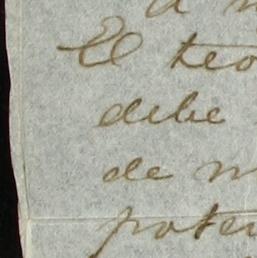 El teo
debe
de m
poten